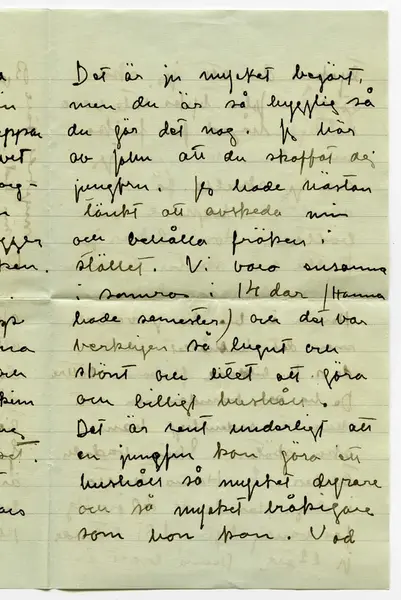 Det är ju mycket begärt,
men du är så hygglig så
du gör det nog. Jg hör
av John att du skaffat dej
jungfru. Jg hade nästan
tänkt att avskeda min
och behålla fröken i
stället. Vi voro ensamma
i somras i 14 dar (Hanna
hade semester) och det var
verkligen så lugnt och
skönt och litet att göra
och billigt hushåll.
Det är rent underligt att
en jungfru kan göra ett
hushåll så mycket dyrare
och så mycket tråkigare
som hon kan. Vad